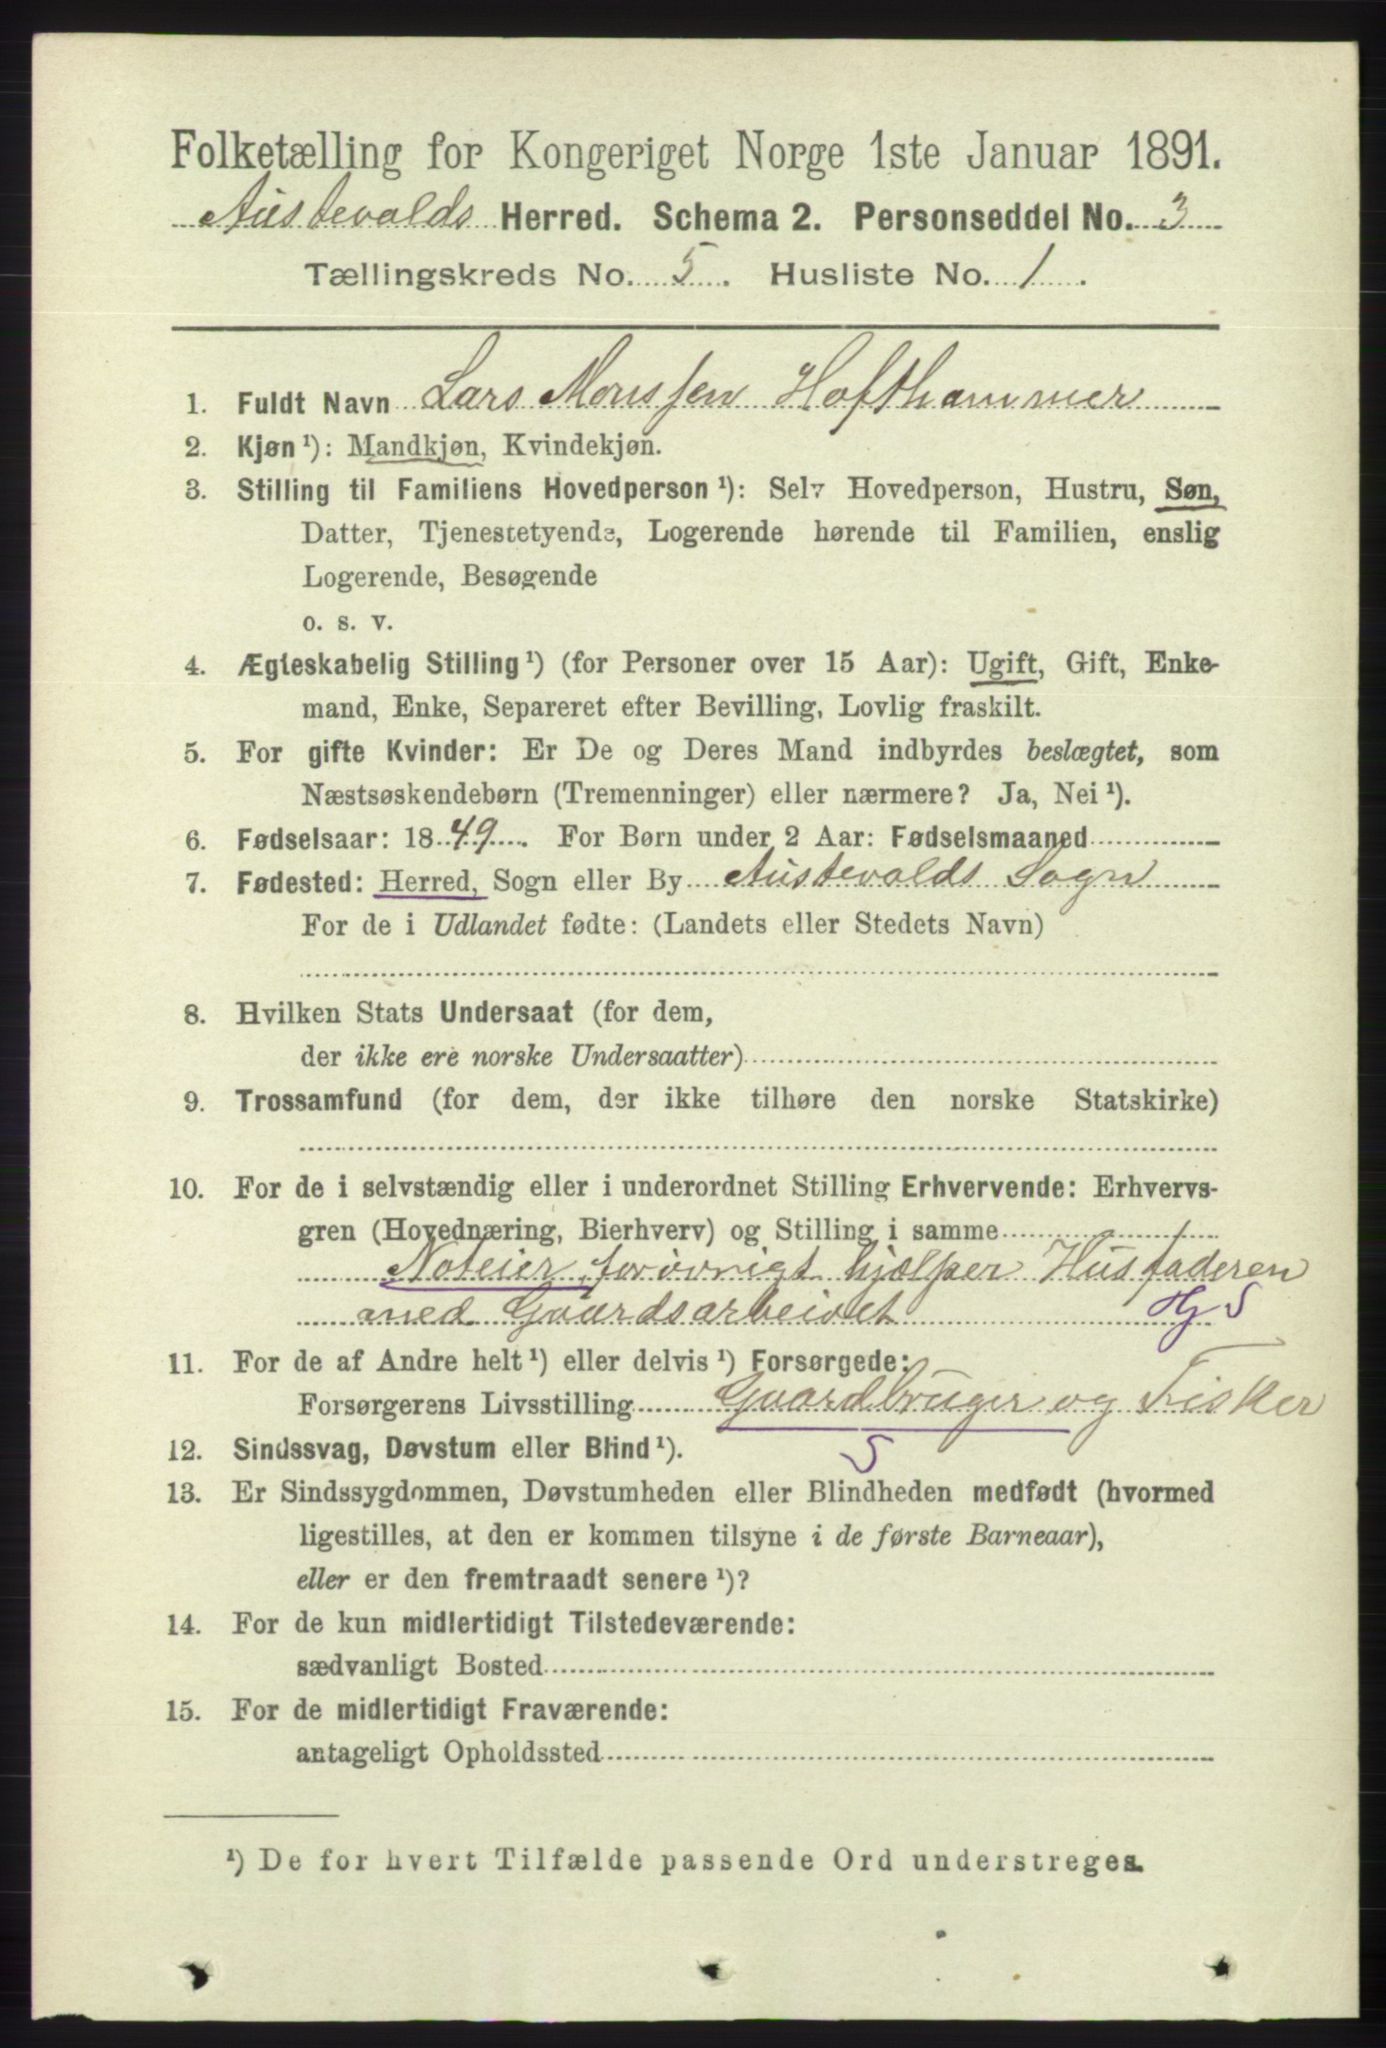 Folketælling for Kongeriget Norge 1ste Januar 1891.
Austevolds Herred. Schema 2. Personseddel No. 3
Tællingskreds No. 5. Husliste No. 1.
1. Fuldt Navn Lars Monssen Hofthammer
2. Kjøn¹): Mandkjøn, Kvindekjøn.
3. Stilling til Familiens Hovedperson¹): Selv Hovedperson, Hustru, Søn,
Datter, Tjenestetyende, Logerende hørende til Familien, enslig
Logerende, Besøgende
o. s. v.
4. Ægteskabelig Stilling¹) (for Personer over 15 Aar): Ugift, Gift, Enke-
mand, Enke, Separeret efter Bevilling, Lovlig fraskilt.
5. For gifte Kvinder: Er De og Deres Mand indbyrdes beslægtet, som
Næstsøskendebørn (Tremenninger) eller nærmere? Ja, Nei¹).
6. Fødselsaar: 1849. For Børn under 2 Aar: Fødselsmaaned
7. Fødested: Herred, Sogn eller By Austevolds Sogn
For de i Udlandet fødte: (Landets eller Stedets Navn)
8. Hvilken Stats Undersaat (for dem,
der ikke ere norske Undersaatter)
9. Trossamfund (for dem, der ikke tilhøre den norske Statskirke)
10. For de i selvstændig eller i underordnet Stilling Erhvervende: Erhvervs-
gren (Hovednæring, Bierhverv) og Stilling i samme
Noteier forøvrigt hjælper Husfaderen
med Gaardsarbeidet Hj S
11. For de af Andre helt¹) eller delvis¹) Forsørgede:
Forsørgerens Livsstilling Gaardbruger og Fisker
12. Sindssvag, Døvstum eller Blind¹). S
13. Er Sindssygdommen, Døvstumheden eller Blindheden medfødt (hvormed
ligestilles, at den er kommen tilsyne i de første Barneaar),
eller er den fremtraadt senere¹)?
14. For de kun midlertidigt Tilstedeværende:
sædvanligt Bosted
15. For de midlertidigt Fraværende:
antageligt Opholdssted
¹) De for hvert Tilfælde passende Ord understreges.